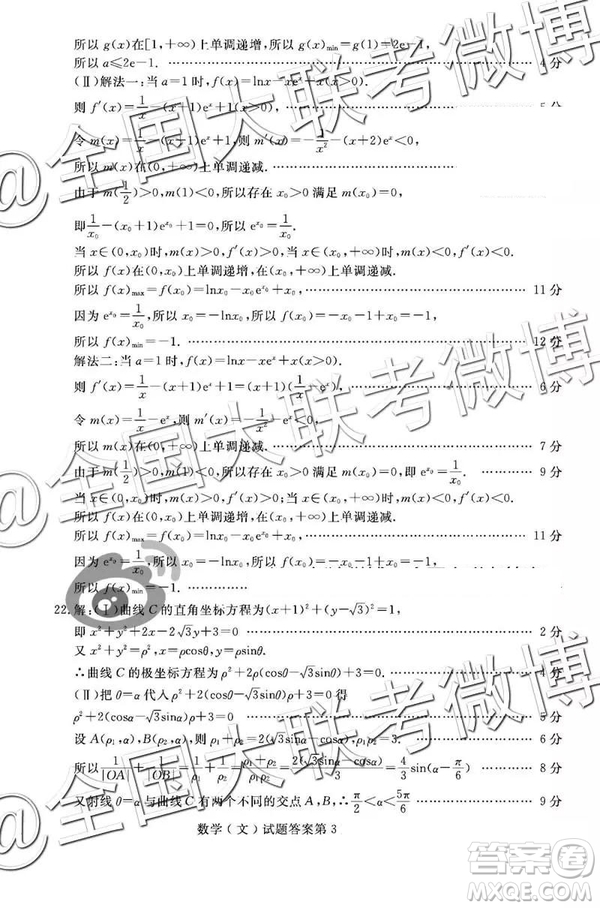 所以 g(x)在[1,+∞)上单调递增,所以 g(x)min=g(1)=2e-1,
所以 a≤2e-1. 4分
(Ⅱ)解法一:当 a=1 时,f(x)=lnx-xeˣ+x(x>0).
则 f′(x)=1/x-(x+1)eˣ+1(x>0). 5分
令 m(x)=1/x-(x+1)eˣ+1,则 m′(x)=-1/x²-(x+2)eˣ<0,
所以 m(x)在(0,+∞)上单调递减.
由于 m(1/2)>0,m(1)<0,所以存在 x₀>0 满足 m(x₀)=0,
即1/x₀-(x₀+1)e^x₀+1=0,所以 e^x₀=1/x₀.
当 x∈(0,x₀)时,m(x)>0,f′(x)>0;当 x∈(x₀,+∞)时,m(x)<0,f′(x)<0.
所以 f(x)在(0,x₀)上单调递增,在(x₀,+∞)上单调递减.
所以 f(x)max=f(x₀)=lnx₀-x₀e^x₀+x₀, 11分
因为 e^x₀=1/x₀,所以 x₀=-lnx₀,所以 f(x₀)=-x₀-1+x₀=-1,
所以 f(x)min=-1. 12分
解法二:当 a=1 时,f(x)=lnx-xeˣ+x(x>0).
则 f′(x)=1/x-(x+1)eˣ+1=(x+1)(1/x-eˣ), 6分
令 m(x)=1/x-eˣ,则 m′(x)=-1/x²-eˣ<0,
所以 m(x)在(0,+∞)上单调递减. 7分
由于 m(1/2)>0,m(1)<0,所以存在 x₀>0 满足 m(x₀)=0,即 e^x₀=1/x₀. 9分
当 x∈(0,x₀)时,m(x)>0,f′(x)>0;当 x∈(x₀,+∞)时,m(x)<0,f′(x)<0.
所以 f(x)在(0,x₀)上单调递增,在(x₀,+∞)上单调递减.
所以 f(x)max=f(x₀)=lnx₀-x₀e^x₀+x₀, 11分
因为 e^x₀=1/x₀,所以 x₀=-lnx₀,所以 f(x₀)=-x₀-1+x₀=-1,
所以 f(x)min=-1.
22.解:(Ⅰ)曲线 C 的直角坐标方程为(x+1)²+(y-√3)²=1,
即 x²+y²+2x-2√3y+3=0 2分
又 x²+y²=ρ²,x=ρcosθ,y=ρsinθ.
∴曲线 C 的极坐标方程为 ρ²+2ρ(cosθ-√3sinθ)+3=0. 4分
(Ⅱ)把 θ=α 代入 ρ²+2(cosθ-√3sinθ)ρ+3=0 得
ρ²+2(cosα-√3sinα)ρ+3=0 5分
设 A(ρ₁,α),B(ρ₂,α),则 ρ₁+ρ₂=2(√3sinα-cosα),ρ₁ρ₂=3. 6分
所以1/|OA|+1/|OB|=1/ρ₁+1/ρ₂=(ρ₁+ρ₂)/ρ₁ρ₂=2(√3sinα-cosα)/3=4/3sin(α-π/6) 8分
又射线 θ=α 与曲线 C 有两个不同的交点 A,B,∴π/2<α<5π/6 9分
数学(文)试题答案第 3
@全国大联考微博
答案圈
MXQE.COM